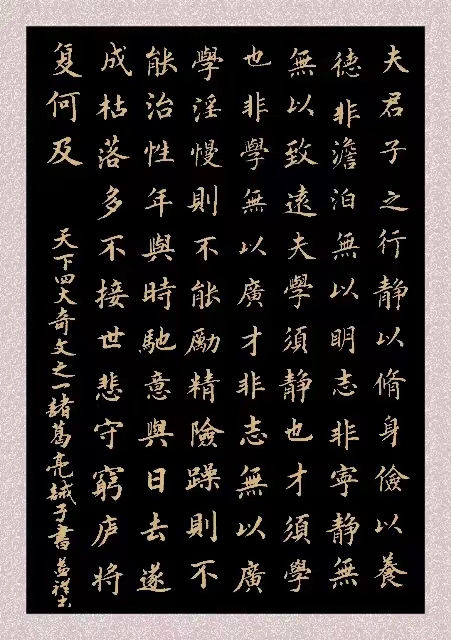 夫君子之行靜以脩身儉以養
德非澹泊無以明志非寧靜無
無以致遠夫學須靜也才須學
也非學無以廣才非志無以廣
學淫慢則不能勵精險躁則不
能治性年與時馳意與日去遂
成枯落多不接世悲守窮庐將
复何及
天下四大奇文之一諸葛亮誡子書益祥